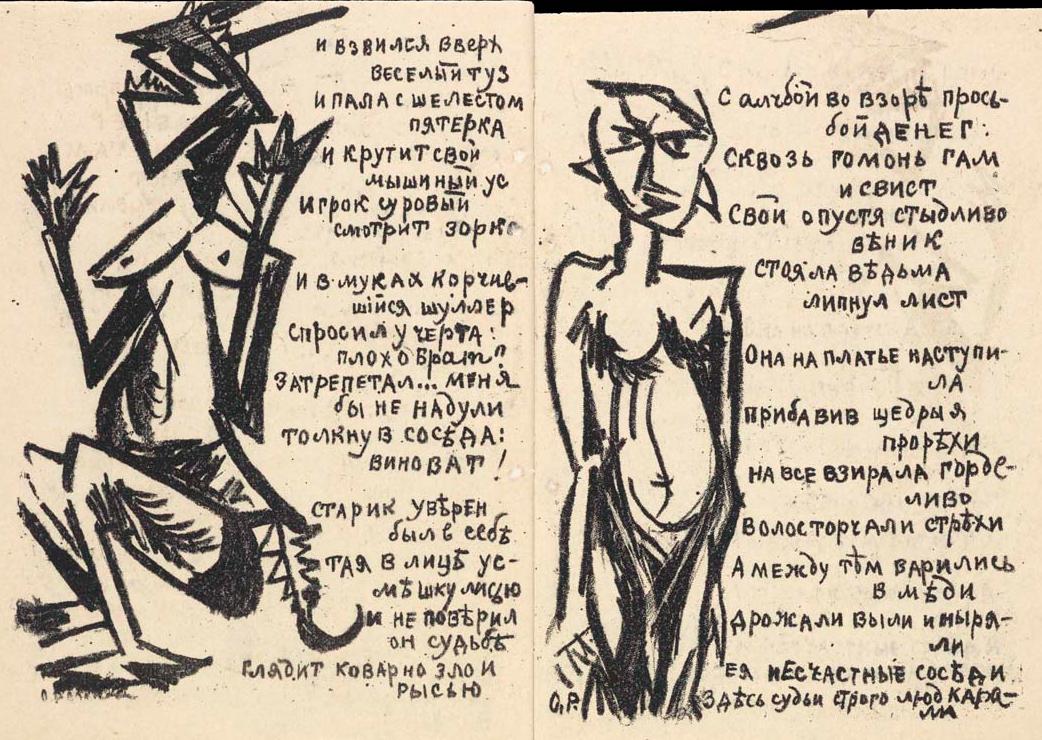 и взвился вверх
веселый туз
и пала с шелестом
пятерка
и крутит свой
мышиный ус
игрок суровый
смотрит зорко
и в муках корчив-
шійся шуллер
спросил у черта:
плохо брат?
затрепетал... меня
бы не надули
толкнув сосѣда:
виноват!
старик увѣрен
был в себѣ
тая в лицѣ ус-
мѣшку лисью
и не повѣрил
он судьбѣ
глядит коварно зло и
рысью
С алчбой во взорѣ прось-
бой денег:
сквозь гомонь гам
и свист
Свой опустя стыдливо
вѣник
стояла вѣдьма
липнул лист
Она на платье наступи-
ла
прибавив щедрыя
прорѣхи
на все взирала горде-
ливо
волос торчали стрѣхи
А между тѣм варились
в мѣди
дрожали выли и ныря-
ли
ея несчастные сосѣди
Здѣсь судьи строго люд кара-
ли
О.Р.